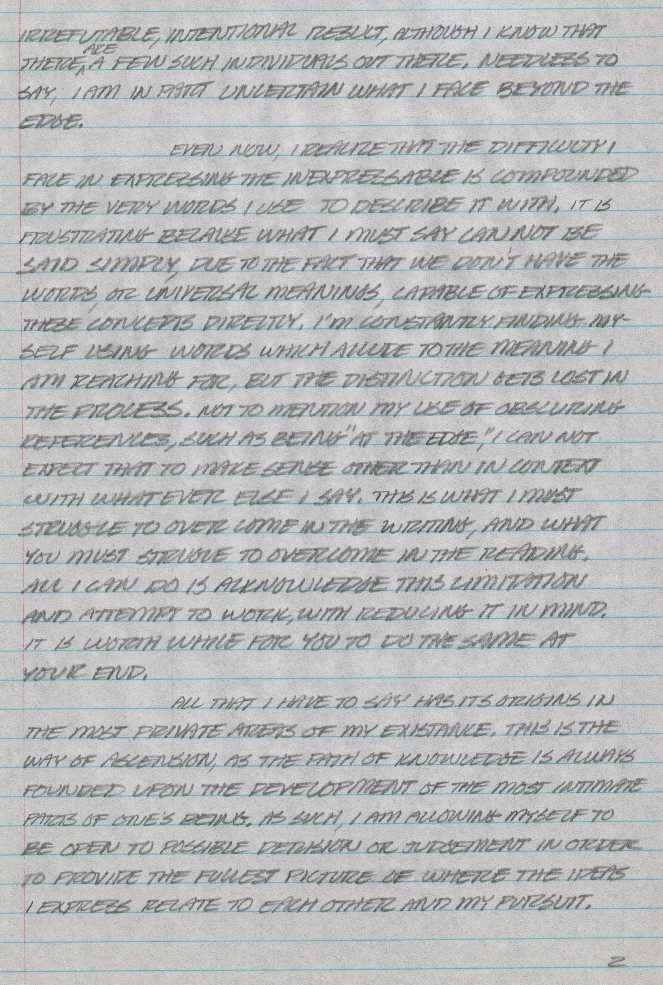 IRREFUTABLE, INTENTIONAL RESULT, ALTHOUGH I KNOW THAT
THERE, ARE A FEW SUCH INDIVIDUALS OUT THERE. NEEDLESS TO
SAY, I AM IN PART UNCERTAIN WHAT I FACE BEYOND THE
EDGE.
EVEN NOW, I REALIZE THAT THE DIFFICULTY I
FACE IN EXPRESSING THE INEXPRESSABLE IS COMPOUNDED
BY THE VERY WORDS I USE TO DESCRIBE IT WITH. IT IS
FRUSTRATING BECAUSE WHAT I MUST SAY CAN NOT BE
SAID SIMPLY, DUE TO THE FACT THAT WE DON'T HAVE THE
WORDS, OR UNIVERSAL MEANINGS, CAPABLE OF EXPRESSING
THESE CONCEPTS DIRECTLY. I'M CONSTANTLY FINDING MY-
SELF USING WORDS WHICH ALLUDE TO THE MEANING I
AM REACHING FOR, BUT THE DISTINCTION GETS LOST IN
THE PROCESS. NOT TO MENTION MY USE OF OBSCURING
REFERENCES, SUCH AS BEING "AT THE EDGE," I CAN NOT
EXPECT THAT TO MAKE SENSE OTHER THAN IN CONTEXT
WITH WHAT EVER ELSE I SAY. THIS IS WHAT I MUST
STRUGGLE TO OVER COME IN THE WRITING, AND WHAT
YOU MUST STRUGLE TO OVERCOME IN THE READING.
ALL I CAN DO IS ACKNOWLEDGE THIS LIMITATION
AND ATTEMPT TO WORK, WITH REDUCING IT IN MIND.
IT IS WORTH WHILE FOR YOU TO DO THE SAME AT
YOUR END.
ALL THAT I HAVE TO SAY HAS ITS ORIGINS IN
THE MOST PRIVATE AREAS OF MY EXISTANCE. THIS IS THE
WAY OF ASCENSION, AS THE PATH OF KNOWLEDGE IS ALWAYS
FOUNDED UPON THE DEVELOPMENT OF THE MOST INTIMATE
PARTS OF ONE'S BEING. AS SUCH, I AM ALLOWING MYSELF TO
BE OPEN TO POSSIBLE DERISION OR JUDGEMENT IN ORDER
TO PROVIDE THE FULLEST PICTURE OF WHERE THE IDEAS
I EXPRESS RELATE TO EACH OTHER AND MY PURSUIT.
2